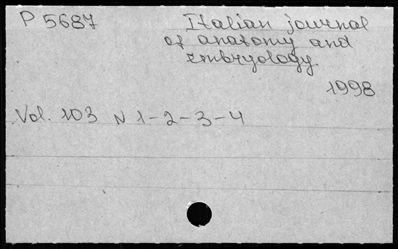 P 5687 Italian journal
of anatomy and
embryology
1998
Vol. 103 N 1-2-3-4